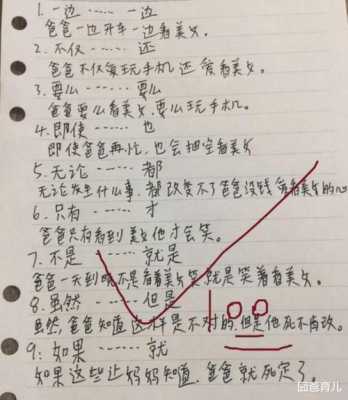 1. 一边 …… 一边
爸爸一边开车一边看美女。
2. 不仅 …… 还
爸爸不仅爱玩手机还爱看美女。
3. 要么 …… 要么
爸爸要么看美女,要么玩手机。
4. 即使 …… 也
即使爸爸再忙,也会抽空看美女
5. 无论 …… 都
无论发生什么事,都改变不了爸爸没钱爱看美女的心
6. 只有 …… 才
爸爸只有看到美女他才会笑。
7. 不是 …… 就是
爸爸一天到晚不是看着美女笑就是笑着看美女。
8. 虽然 …… 但是
虽然,爸爸知道这样是不对的,但是他死不肯改。
100
9: 如果 …… 就
如果这些让妈妈知道,爸爸就死定了。
回爸育儿